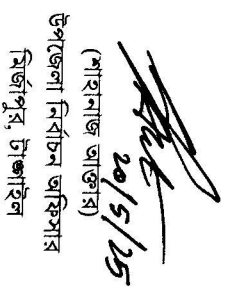 20/5/25
(শাহনাজ আক্তার)
উপজেলা নির্বাচন অফিসার
মির্জাপুর, টাঙ্গাইল